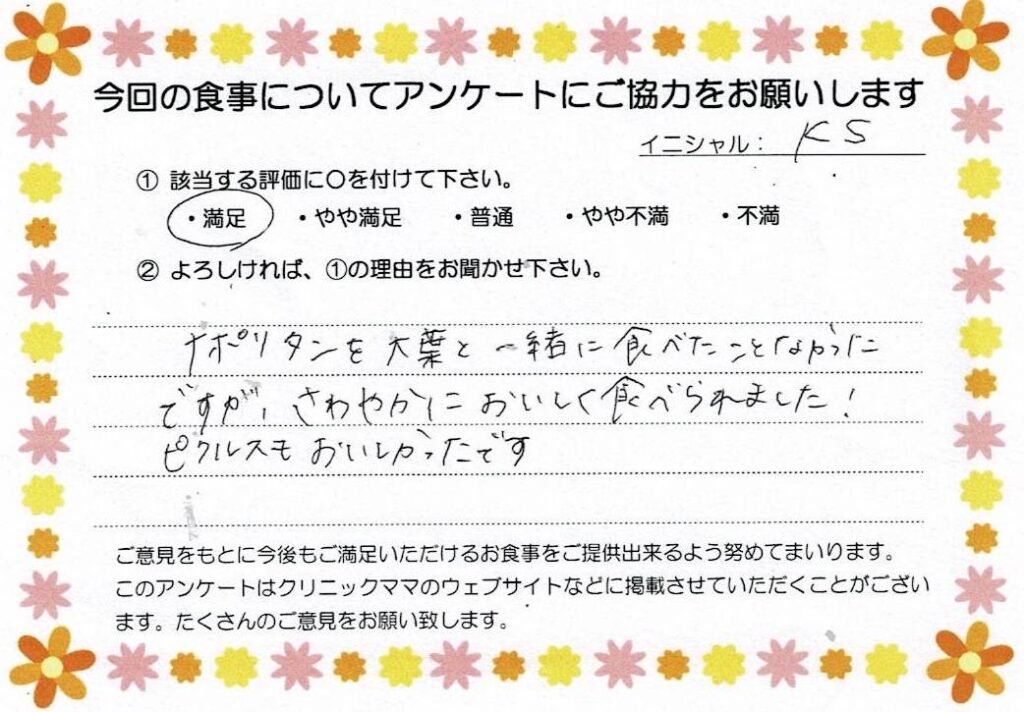 今回の食事についてアンケートにご協力をお願いします
イニシャル： KS
① 該当する評価に〇を付けて下さい。
・満足 ・やや満足 ・普通 ・やや不満 ・不満
② よろしければ、①の理由をお聞かせ下さい。
ナポリタンを大葉と一緒に食べたことなかった
ですが、さわやかにおいしく食べられました！
ピクルスもおいしかったです
ご意見をもとに今後もご満足いただけるお食事をご提供出来るよう努めてまいります。
このアンケートはクリニックママのウェブサイトなどに掲載させていただくことがござい
ます。たくさんのご意見をお願い致します。